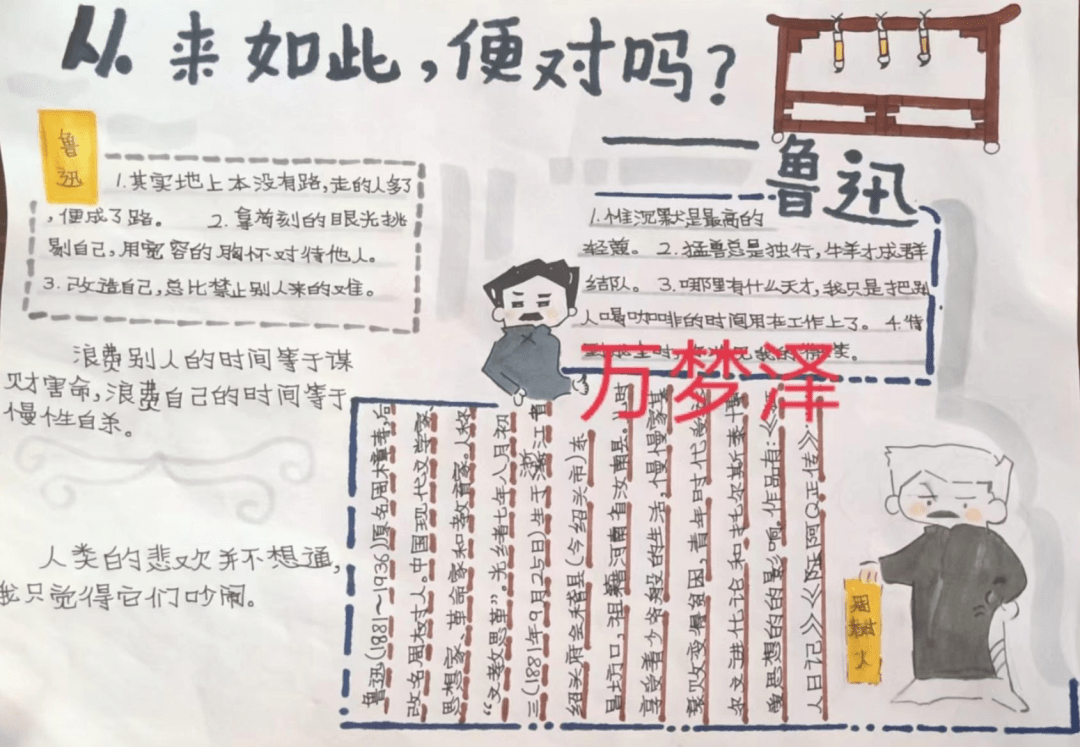 从来如此,便对吗?
鲁迅
鲁迅
1.其实地上本没有路,走的人多了
,便成了路。 2.拿苛刻的眼光挑
剔自己,用宽容的胸怀对待他人。
3.改造自己,总比禁止别人来的难。
浪费别人的时间等于谋
财害命,浪费自己的时间等于
慢性自杀。
人类的悲欢并不想通,
我只觉得它们吵闹。
1.惟沉默是最高的
轻蔑。 2.猛兽总是独行,牛羊才成群
结队。 3.哪里有什么天才,我只是把别
人喝咖啡的时间用在工作上了。 4.待
万梦泽
鲁迅(1881~1936)原名周樟寿,后
改名周树人.中国现代文学家、
思想家、革命家和教育家.人称
"文教思革".光绪七年八月初
三(1881年9月25日)生于浙江省
绍头府会稽县(今绍头市)东
昌坊口,祖籍河南省汝南县.少时
享受着少爷般的生活,慢慢家基
衰败变得贫困,青年时代
尔文进化论和托尔斯泰博
爱思想的的影响.作品有:《狂
人日记》》《阿Q正传》
周树人